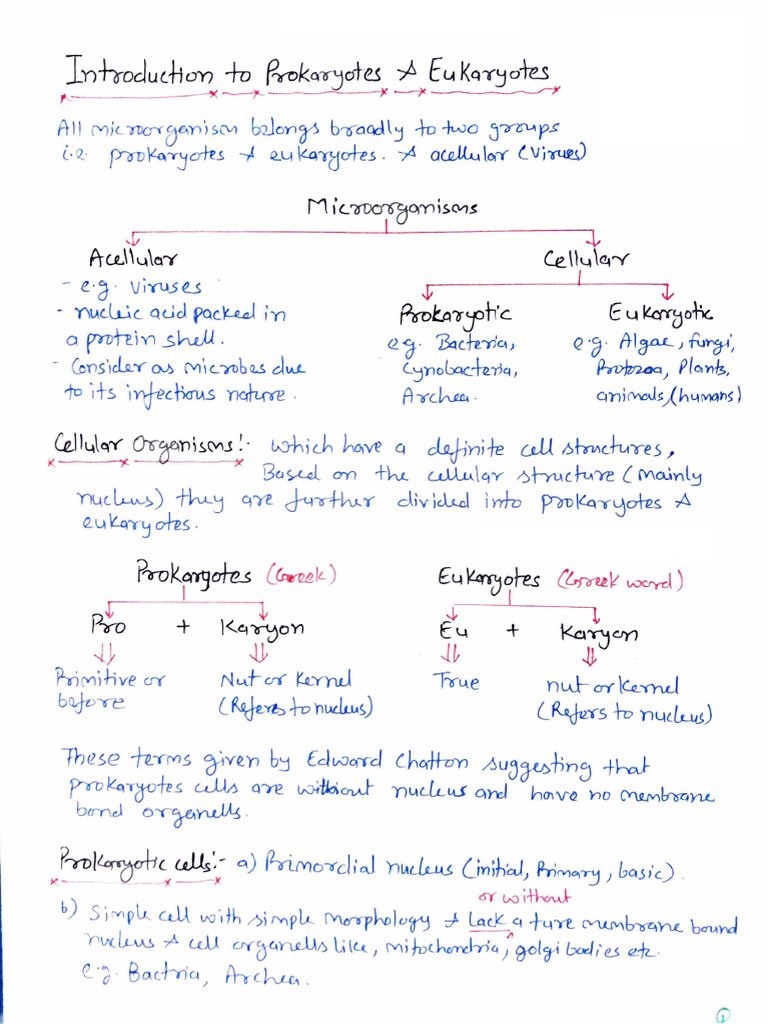 Introduction to Prokaryotes & Eukaryotes
All microorganism belongs broadly to two groups
i.e. prokaryotes & eukaryotes. & acellular (Virues)
Microorganisms
Acellular
- e.g. viruses
- nucleic acid packed in
a protein shell.
- Consider as microbes due
to its infectious nature.
Cellular
Prokaryotic
e.g. Bacteria,
Cynobacteria,
Archea.
Eukaryotic
e.g. Algae, fungi,
Protozoa, Plants,
animals, (humans)
Cellular Organisms:- which have a definite cell structures,
Based on the cellular structure (mainly
nucleus) they are further divided into prokaryotes &
eukaryotes.
Prokaryotes (Greek)
Pro + Karyon
Primitive or
before
Nut or Kernel
(Refers to nucleus)
Eukaryotes (Greek word)
Eu + Karyon
True
nut or kernel
(Refers to nucleus)
These terms given by Edward Chatton suggesting that
prokaryotes cells are without nucleus and have no membrane
bond organells.
Prokaryotic cells:- a) Primordial nucleus (initial, Primary, basic).
or without
b) Simple cell with simple morphology & Lack a ture membrane bound
nucleus & cell organells like, mitochondria, golgi bodies etc.
e.g. Bactria, Archea.
1